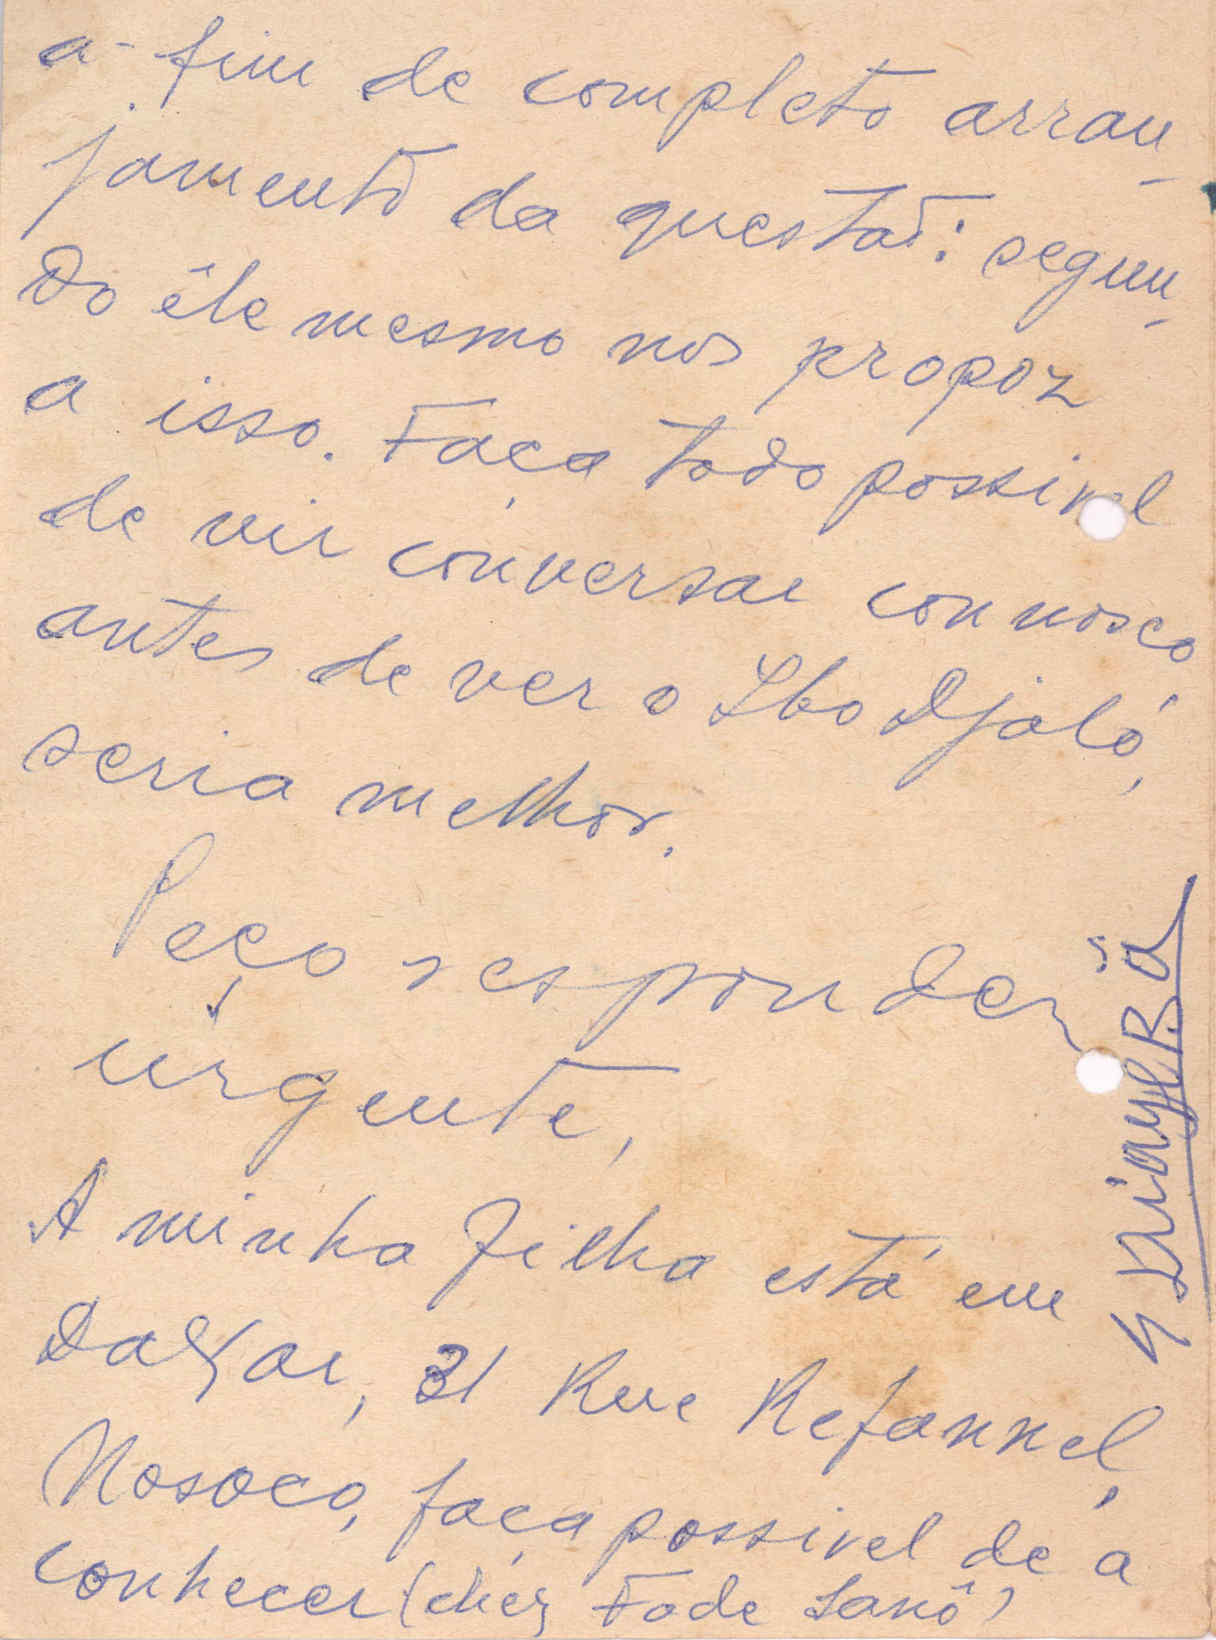 a fim de completo arran-
jamento da questaõ: segun-
do êle mesmo nos propoz
a isso. Faça todo possivel
de vir conversar connosco
antes de ver o Ibo Djaló,
seria melhor.
Peço responder
urgente,
A minha filha está em
Dakar, 31 Rue Refannel,
Nosoco, faça possivel de a
conhecer (chez Fode Sanô)
Ndiaye Bâ